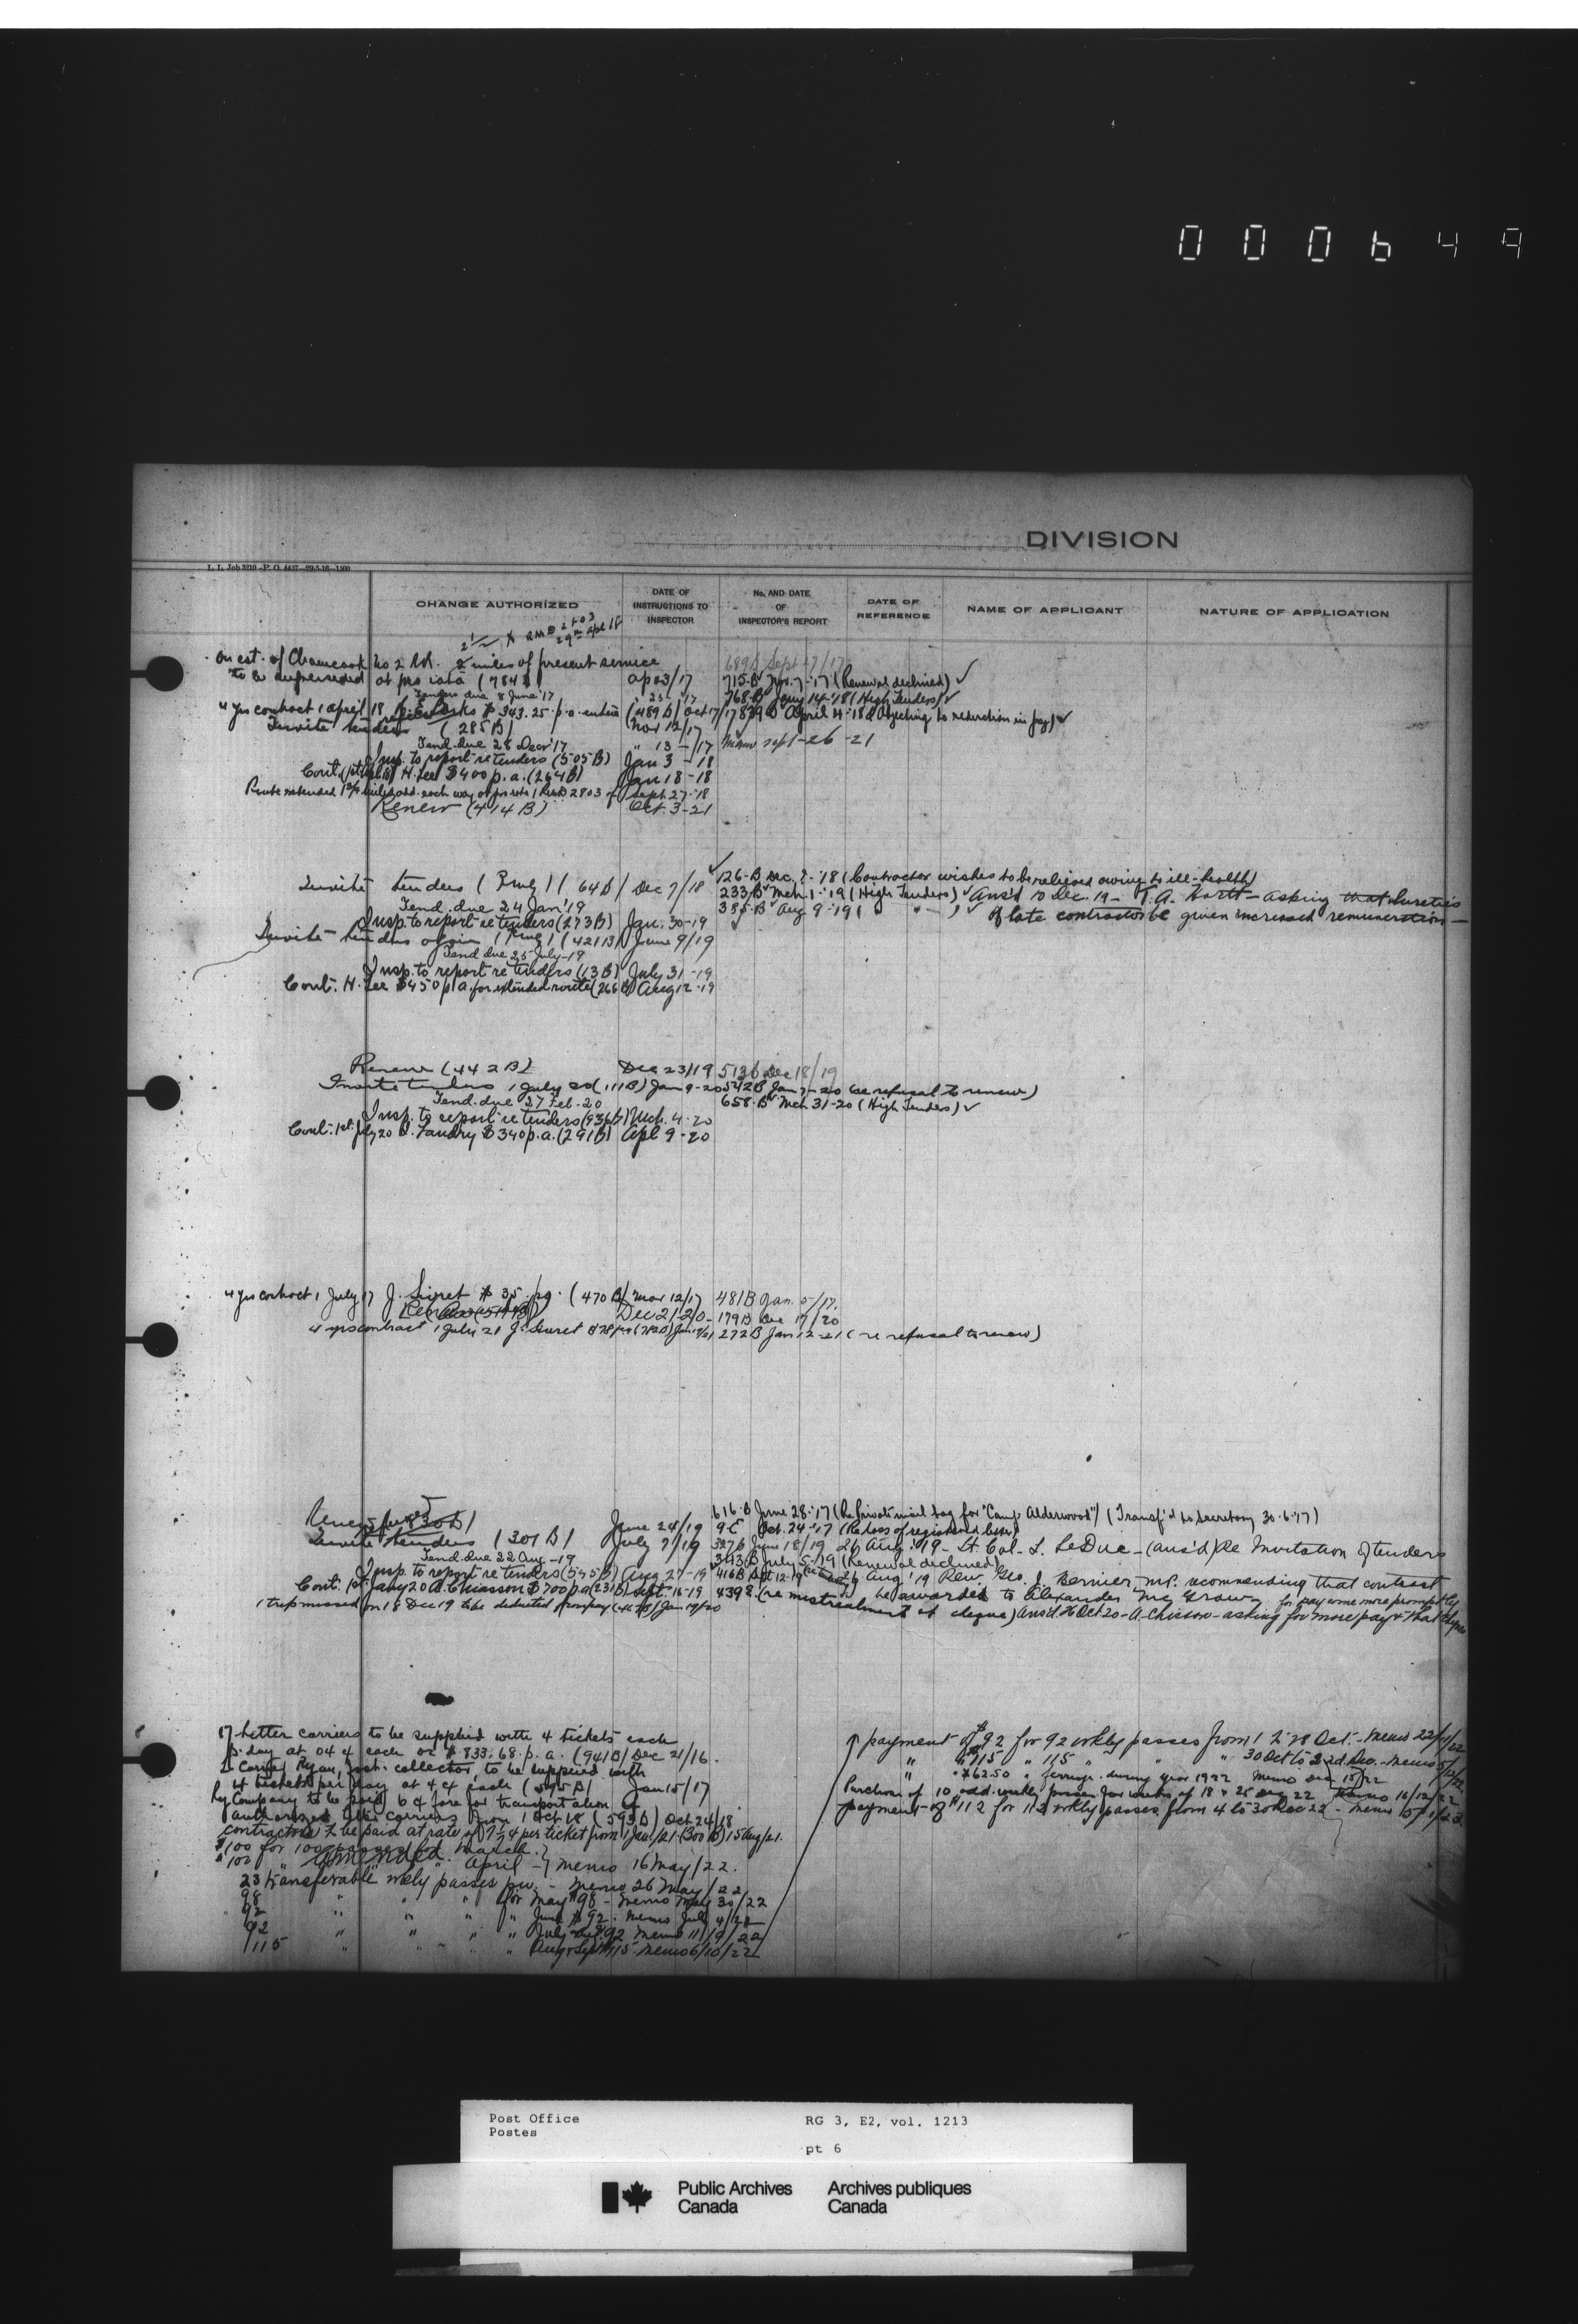 000649
DIVISION
L. L. Job 2210—P. O. 4437—29-5-16—1500
CHANGE AUTHORIZED
DATE OF INSTRUCTIONS TO INSPECTOR
No. AND DATE OF INSPECTOR'S REPORT
DATE OF REFERENCE
NAME OF APPLICANT
NATURE OF APPLICATION
on est. of Chamcook No 2 RR. 2 miles of present service 689B Sept 27/17
to be superseded at pro rata (784B) ap 23/17 715-B Nov. 7-'17 (Renewal declined) ✓
Tenders due 8 June '17 768-B Jany 14-'18 (High Tenders) ✓
4 yrs contract 1 april 18 $343.25 p.a. (489B) Oct 17/17 839B April 4-'18 (Objecting to reduction in pay) ✓
Invite tenders (285B) Nov 12/17
Tend. due 28 Decr '17 " 13-/17 Memo sept-26-21
Insp. to report re tenders (505B) Jan 3-18
Cont. H. Lee $400 p.a. (264B) Jan 18-18
Sept 27-'18
Renew (414B) Oct 3-21
Invite tenders (64B) Dec 7/18 126-B Dec. 2-'18 (Contractor wishes to be relieved owing to ill-health)
Tend. due 24 Jan '19 233B Mch. 1-'19 (High Tenders) ✓ Ans'd 10 Dec. 19- T.A. Hartt - asking that sureties
Insp. to report re tenders (273B) Jan. 30-19 385-B Aug 9-'19 ( " - ) ✓ of late contractor be given increased remuneration-
Invite tenders again (421B) June 9/19
Tend due 25 July-19
Insp. to report re tenders (13B) July 31-19
Cont. H. Lee $450 p.a. for extended route (266B) Aug 12-19
Renew (442B) Dec 23/19 513B Dec 18/19
Invite tenders 1 July 20 (111B) Jan 9-20 542B Jan 7-20 (re refusal to renew)
Tend. due 27 Feb-20 658-B Mch 31-20 (High Tenders) ✓
Insp. to report re tenders (936B) Mch. 4-20
Cont. 1st July 20 Landry $340 p.a. (291B) Apl 9-20
4 yrs contract 1 July 17 J. Siret $35. pa. (470B) Mar 12/17 481B Jan. 5-/17.
Dec 21-20- 179B Dec 17/20
4 yrs contract 1 July 21 J. Siret $78 pa (782B) 272B Jan 12-21 (re refusal to renew)
616-B June 28-'17 (Re Private mail bag for "Camp Alderwood") (Transf'd to Secretary 30-6-'17)
June 24/19 9-C Oct. 24-'17 (Re loss of registered letter)
Invite tenders (301B) July 7/19 327B June 18/19 26 Aug. '19- Lt. Col. L. LeDuc - (ans'd) Re Invitation of tenders
Tend. due 22 Aug-19 343B July 5-/19 (Renewal declined)
Insp. to report re tenders (545B) Aug 27-19 416B Sept 12-19 26 Aug '19 Rev. Geo. J. Bernier, M.P. recommending that contract
Cont. 1st Jany 20 A. Chiasson $700 pa (231B) Sept. 16-19 439B (re mistreatment of cheque) be awarded to Alexander McGraw
1 trip missed on 18 Dec 19 to be deducted Jan 19/20 Ans'd 26 Oct 20 - A. Chiasson - asking for more pay & that cheque for pay come more promptly
17 letter carriers to be supplied with 4 tickets each
p. day at 04¢ each or $833.68 p.a. (941B) Dec 21/16.
Ryan, collector, to be supplied with
4 tickets per day at 4¢ each (595B) Jan 15/17
Ry Company to be paid 6¢ fare for transportation of
authorized letter carriers from 1 Oct 18 (593B) Oct 24/18
contractors to be paid at rate of 7¼¢ per ticket from 1 Jan./21 (300B) 15 Aug/21.
$100 for 100 March
$100 for " amended " April - Memo 16 May/22.
23 transferable wkly passes pw. - Memo 26 May/22
98 " " " for May $98 - Memo May 30/22
92 " " " " June $92. Memo July 4/22
92 " " " " July $92 Memo 11/9/22
115 " " " " Aug & Sept $115 Memo 6/10/22
payment of $92 for 92 wkly passes from 1 to 28 Oct. - Memo 22/11/22
" " $115 " 115 " " " 30 Oct to 2nd Dec. - Memo 5/12/22
" " $62.50 " ferriage during year 1922 Memo Dec 15/22
Purchase of 10 add. weekly passes for weeks of 18 & 25 Dec 22 Memo 16/12/22
payment of $112 for 112 wkly passes from 4 to 30 Dec 22 - Memo 5/1/23.
Post Office
Postes
RG 3, E2, vol. 1213
pt 6
Public Archives Canada
Archives publiques Canada